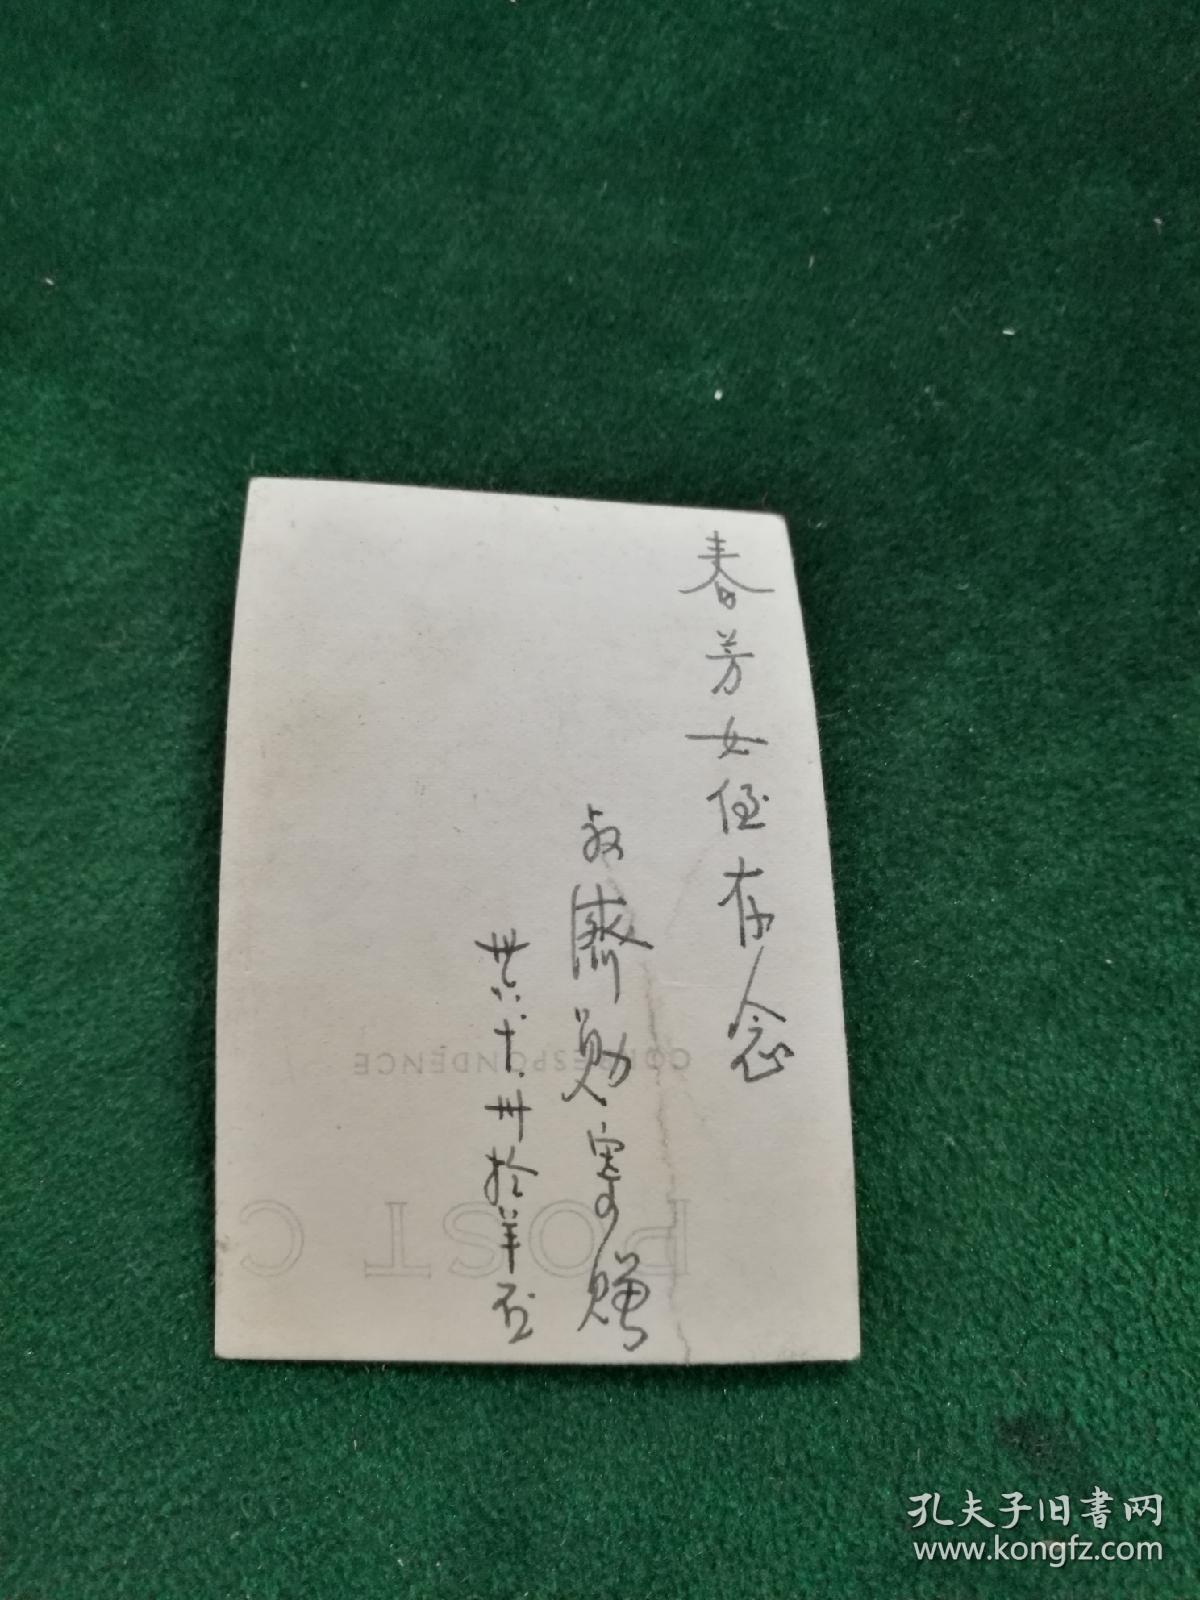 春芳女侄存念
叔济勋寄赠
卅六.十.卅於羊城
CORRESPONDENCE
POST C
孔夫子旧書网
www.kongfz.com